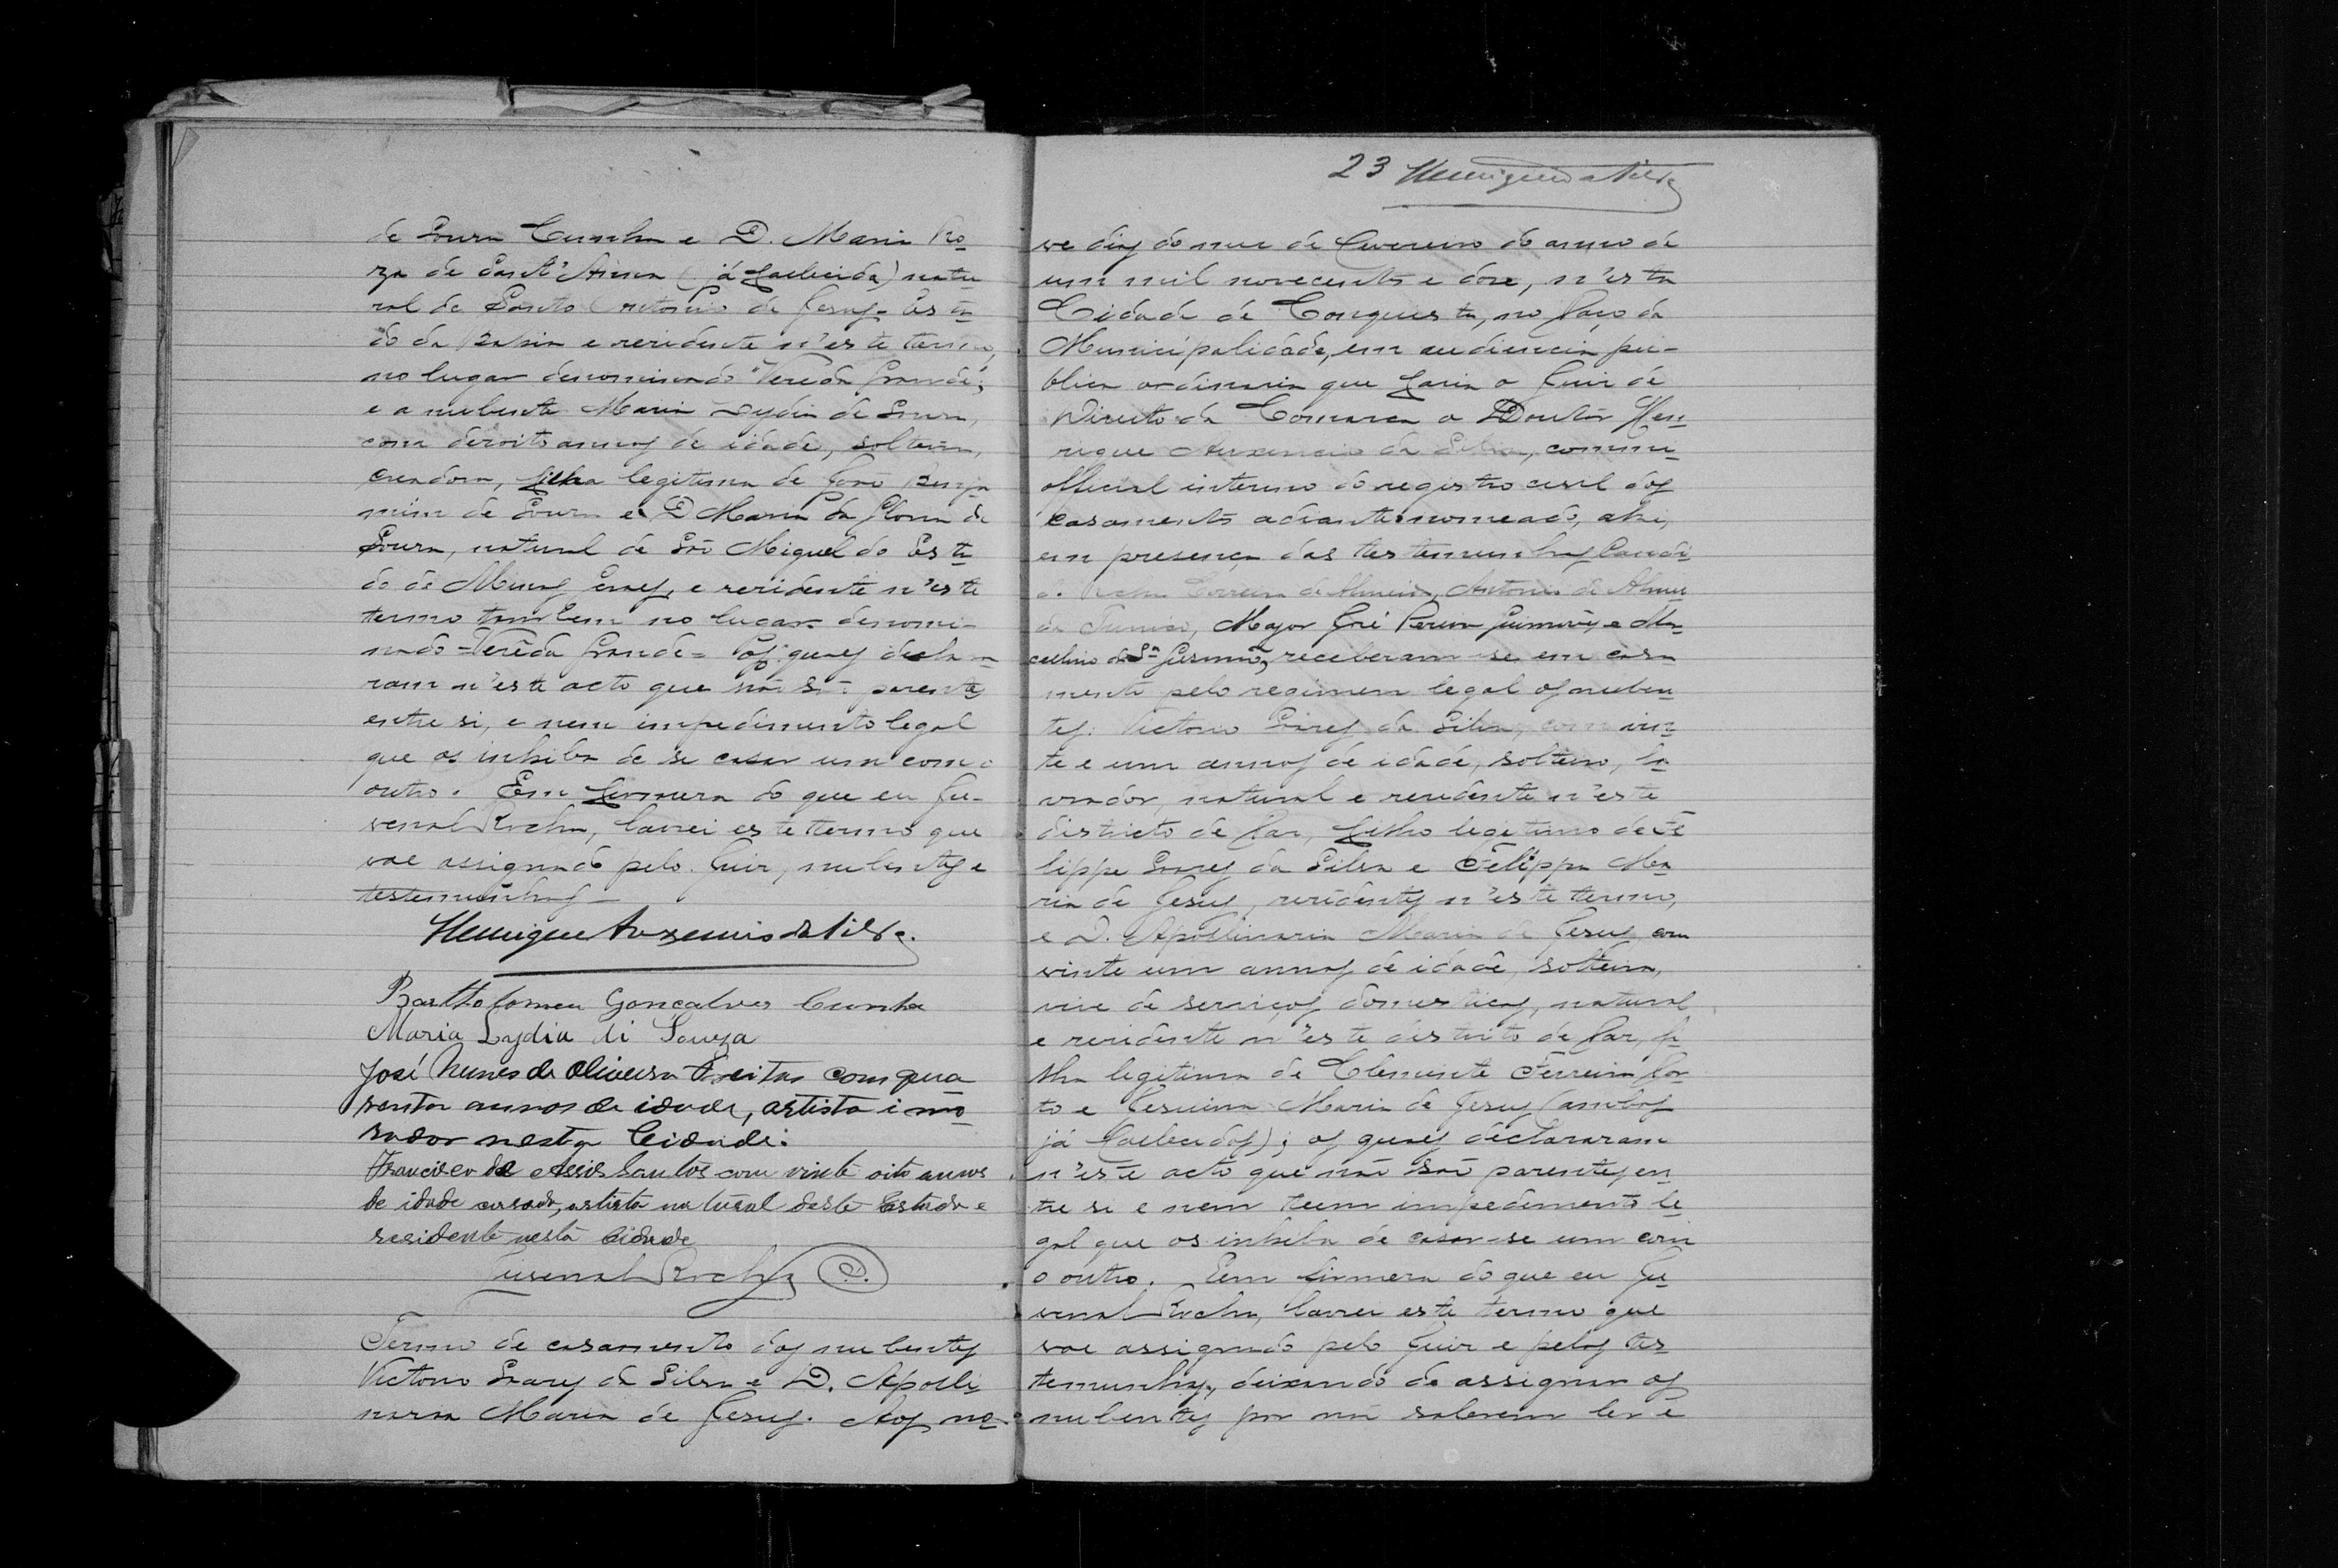 de Souza Cunha e D. Maria Ro-
za de Sant'Anna (já fallecida) natu-
ral de Santo Antonio de Jesus, Esta-
do da Bahia e rezidente n'este termo,
no lugar denominado "Verêda Grande";
e a nubente Maria Lydia de Souza,
com dezoito annos de idade, solteira,
creadora, filha legitima de João Benja-
mim de Souza e D Maria da Gloria de
Souza, natural de São Miguel do Esta-
do de Minas Geraes, e rezidente n'este
termo tambem no lugar denomi-
nado = Verêda Grande = Os quaes decla-
ram n'este acto que não são parentes
entre si, e nem impedimento legal
que os inhiba de se casar um com o
outro. Em firmeza do que eu Ju-
venal Rocha, lavrei este termo que
vae assignado pelo Juiz, nubentes e
testemunhas —
Henrique Auxencio da Silva.
Bartholomeu Gonçalves Cunha
Maria Lydia di Souza
José Nunes de Oliveira Freitas com qua
renta annos de idade, artista i mo
rador nesta Cidade.
Francisco de Assis Santos com vinte oito annos
de idade casado, artista natural deste Estado e
residente nesta Cidade
Juvenal Rocha
Termo de casamento dos nubentes
Victorio Soares da Silva e D. Apolli-
naria Maria de Jesus. Aos no-
23 Henrique da Silva
ve dias do mez de Fevereiro do anno de
um mil novecentos e doze, n'esta
Cidade de Conquista, no Paço da
Municipalidade, em audiencia pu-
blica ordinaria que fazia o Juiz de
Direito da Comarca o Doutôr Hen-
rique Auxencio da Silva, commi-
official interino do registro civil dos
casamentos adiante nomeado, ahi,
em presença das testemunhas Candi-
do Rocha Correia de Almeida, Antonio de Almei-
da Junior, Major José Pereira Guimarães e Ma-
cellino da Sª Gusmão, receberam-se em casa
mento pelo regimen legal os nuben-
tes: Victorio Soares da Silva, com vin-
te e um annos de idade, solteiro, la-
vrador, natural e rezidente n'este
districto de Paz, filho legitimo de Fe-
lippe Soares da Silva e Felippa Ma-
ria de Jesus, rezidentes n'este termo,
e D. Apollinaria Maria de Jesus, com
vinte um annos de idade, solteira,
vive de serviços domesticos, natural
e rezidente n'este districto de Paz, fi-
lha legitima de Clemente Ferreira Por-
to e Jesuina Maria de Jesus (ambos
já fallecidos); os quaes declararam
n'este acto que não são parentes en-
tre si e nem teem impedimento le-
gal que os inhiba de casar-se um com
o outro. Em firmeza do que eu Ju-
venal Rocha, lavrei este termo que
vae assignado pelo Juiz e pelas tes-
temunhas, deixando de assignar os
nubentes por não saberem ler e